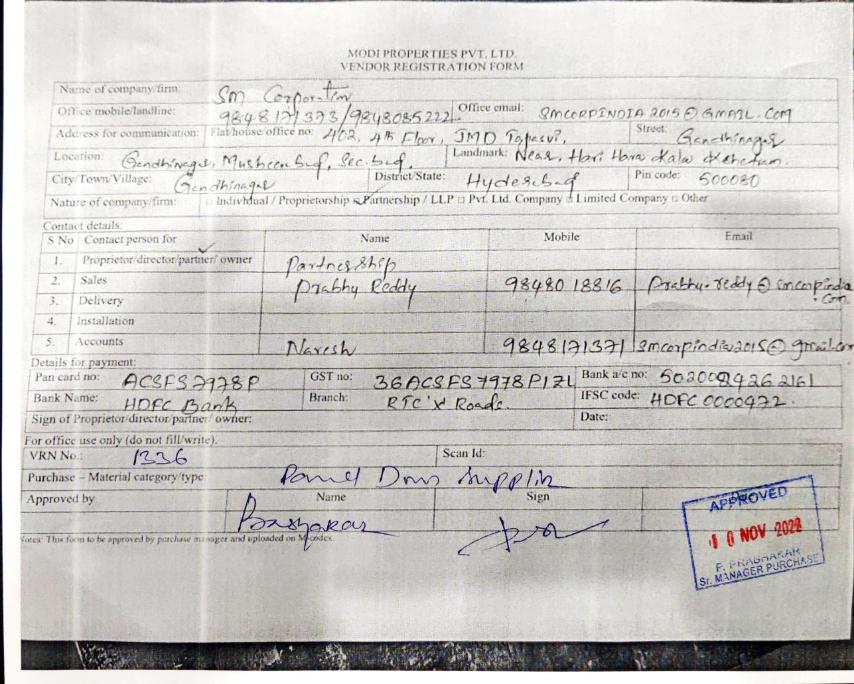 MODI PROPERTIES PVT. LTD.
VENDOR REGISTRATION FORM
Name of company/firm: SM Corporation
Office mobile/landline: 9848171373/9848085222 Office email: SMCORPINDIA2015@GMAIL.COM
Address for communication: Flat/house/office no: 402, 4th Floor, JMD Tapasvi, Street: Gandhinagar
Location: Gandhinagar, Musheerabad, Sec.bad. Landmark: Near, Hari Hara Kala
City/Town/Village: Gandhinagar District/State: Hyderabad Pin code: 500080
Nature of company/firm: □ Individual / Proprietorship Partnership / LLP □ Pvt. Ltd. Company □ Limited Company □ Other
Contact details:
S No Contact person for Name Mobile Email
1. Proprietor/director/partner/ owner Partnership
2. Sales Prabhu Reddy 98480 18816 Prabhu.reddy@smcorpindia.com
3. Delivery
4. Installation
5. Accounts Naresh 9848171371 smcorpindia2015@gmail.com
Details for payment:
Pan card no: ACSFS7978P GST no: 36ACSFS7978P1ZL Bank a/c no:
Bank Name: HDFC Bank Branch: RTC 'X' Roads. IFSC code: HDFC0000472.
Sign of Proprietor/director/partner/ owner: Date:
For office use only (do not fill/write).
VRN No.: 1336 Scan Id:
Purchase – Material category/type: Panel
Approved by Name Sign
Notes: This form to be approved by purchase manager and uploaded on Mcodex.
APPROVED
10 NOV 2022
P. PRABHAKAR
Sr. MANAGER PURCHASE